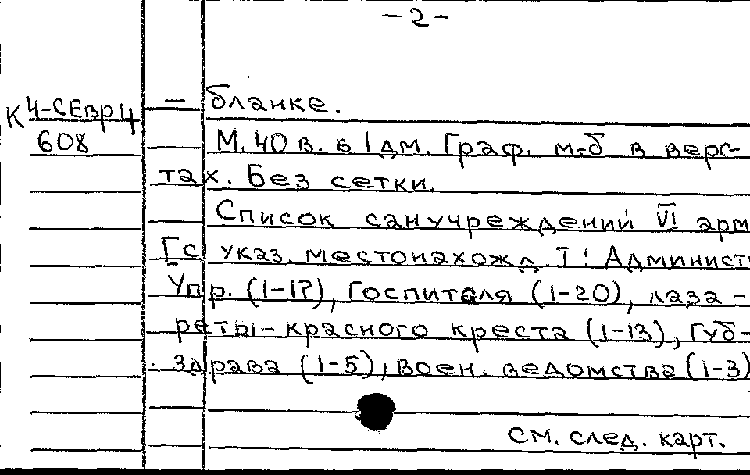 -2-
К 4-СЕвр4 - бланке.
608 М. 40 в. в 1 дм. Граф. м-б в верс-
тах. Без сетки.
Список санучреждений VI арм
[с указ. местонахожд.]: Админист
Упр. (1-17), Госпиталя (1-20), лаза-
реты-красного креста (1-13), Губ-
здрава (1-5), воен. ведомства (1-3)
см. след. карт.